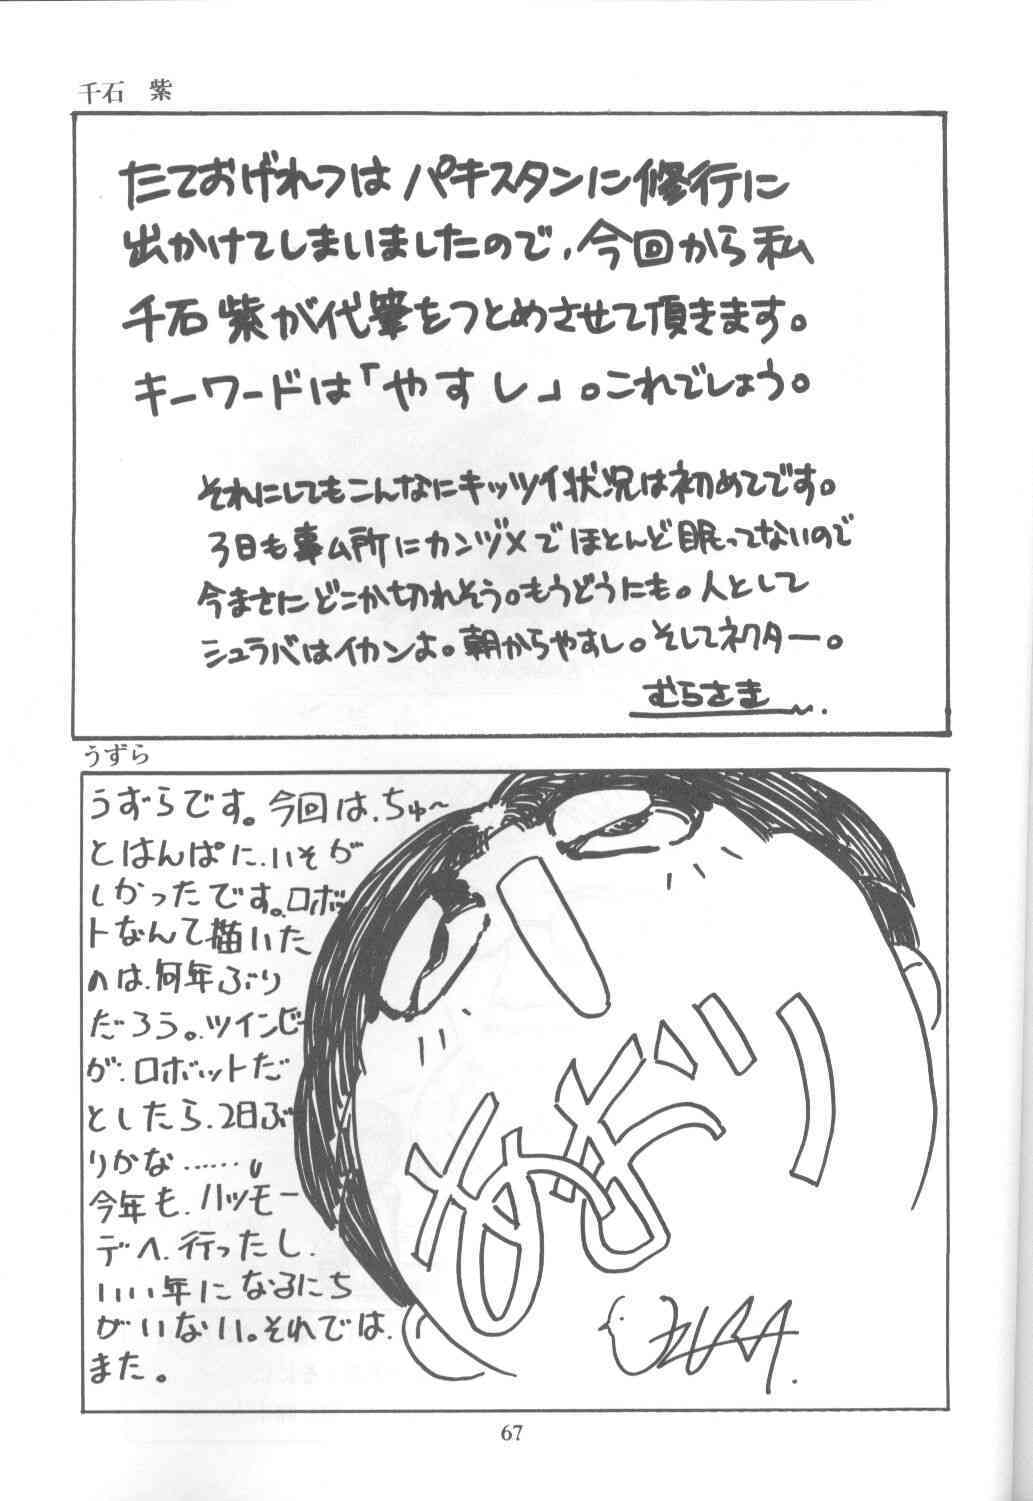 千石　紫
たておげれつは パキスタンに修行に
出かけてしまいましたので、今回から私
千石紫が代筆をつとめさせて頂きます。
キーワードは「やすし」。これでしょう。
それにしてもこんなにキッツイ状況は初めてです。
3日も事ム所にカンヅメでほとんど眠ってないので
今まさにどこか切れそう。もうどうにも。人として
シュラバはイカンよ。朝からやすし。そしてネクター。
むらさき〜.
うずら
うずらです。今回は、ちゅ〜
とはんぱに、いそが
しかったです。ロボッ
トなんて描いた
のは、何年ぶり
だろう。ツインビー
が、ロボットだ
としたら、2日ぶ
りかな……。
今年も、ハツモー
デへ、行ったし、
いい年になるにち
がいない。それでは、
また。
67